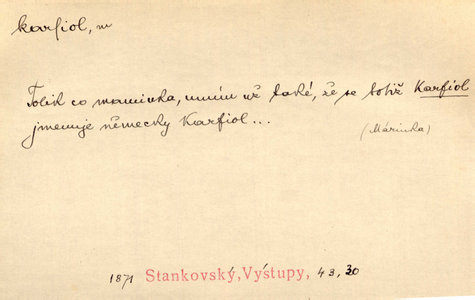 karfiol, m
Tolik co maminka, umím už také, že se totiž Karfiol
jmenuje německy Karfiol...
(Márinka)
1871 Stankovský, Výstupy, 43, 30